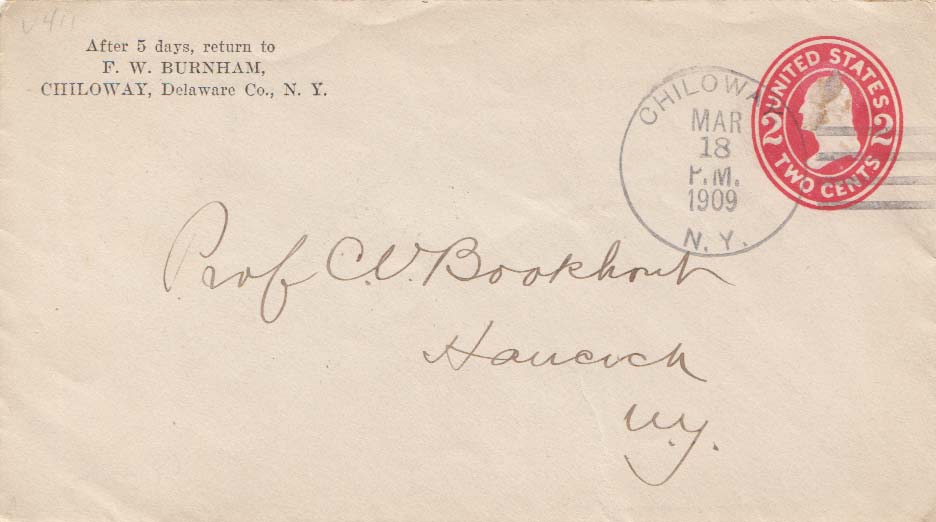 v411
After 5 days, return to
F. W. BURNHAM,
CHILOWAY, Delaware Co., N. Y.
CHILOWAY
MAR
18
P.M.
1909
N.Y.
UNITED STATES
2 2
TWO CENTS
Prof C.V. Bookhout
Hancock
N.Y.